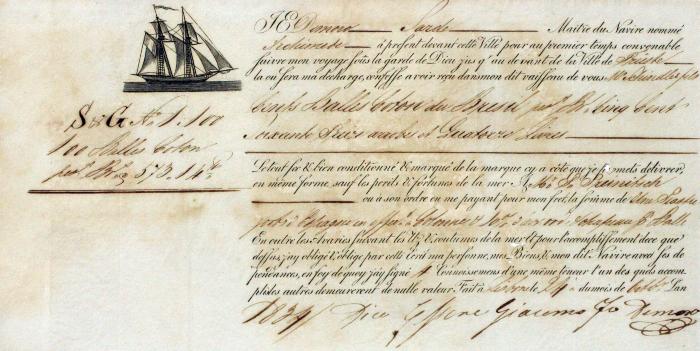 JE Demoro Sardo Maitre du Navire nommé
à présent devant cette Ville pour au premier temps convenable
suivre mon voyage sous la garde de Dieu jusq' au devant de la Ville de Trieste
la où sera ma décharge, confesse avoir reçu dans mon dit vaisseau de vous
Cent Balles Coton du Bresil Cinq Cent
Soixante et Quatorze Livres
S & G No. 1. 100
100 Balles Coton
573. 14
Le tout sec & bien conditionné & marqué de la marque cy a côté que je promets délivrer,
en même forme, sauf les perils & fortunes de la mer A
ou à son ordre en me payant pour mon fret la somme de Une Piastre
En outre les Avaries suivant les Uz & coutumes de la mer Et pour l'accomplissement de ce que
dessus j'ay obligé & oblige par cette Cert ma personne, mes Biens, & mon dit Navire avec ses de-
pendances, en foy de quoy j'ay signé 4 Connoissemens d'une même teneur l'un des quels accom-
plis les autres demeureront de nulle valeur Fait à Lisbonne le 24 du mois de L'an
1824 Dico Essere Giacomo Demoro